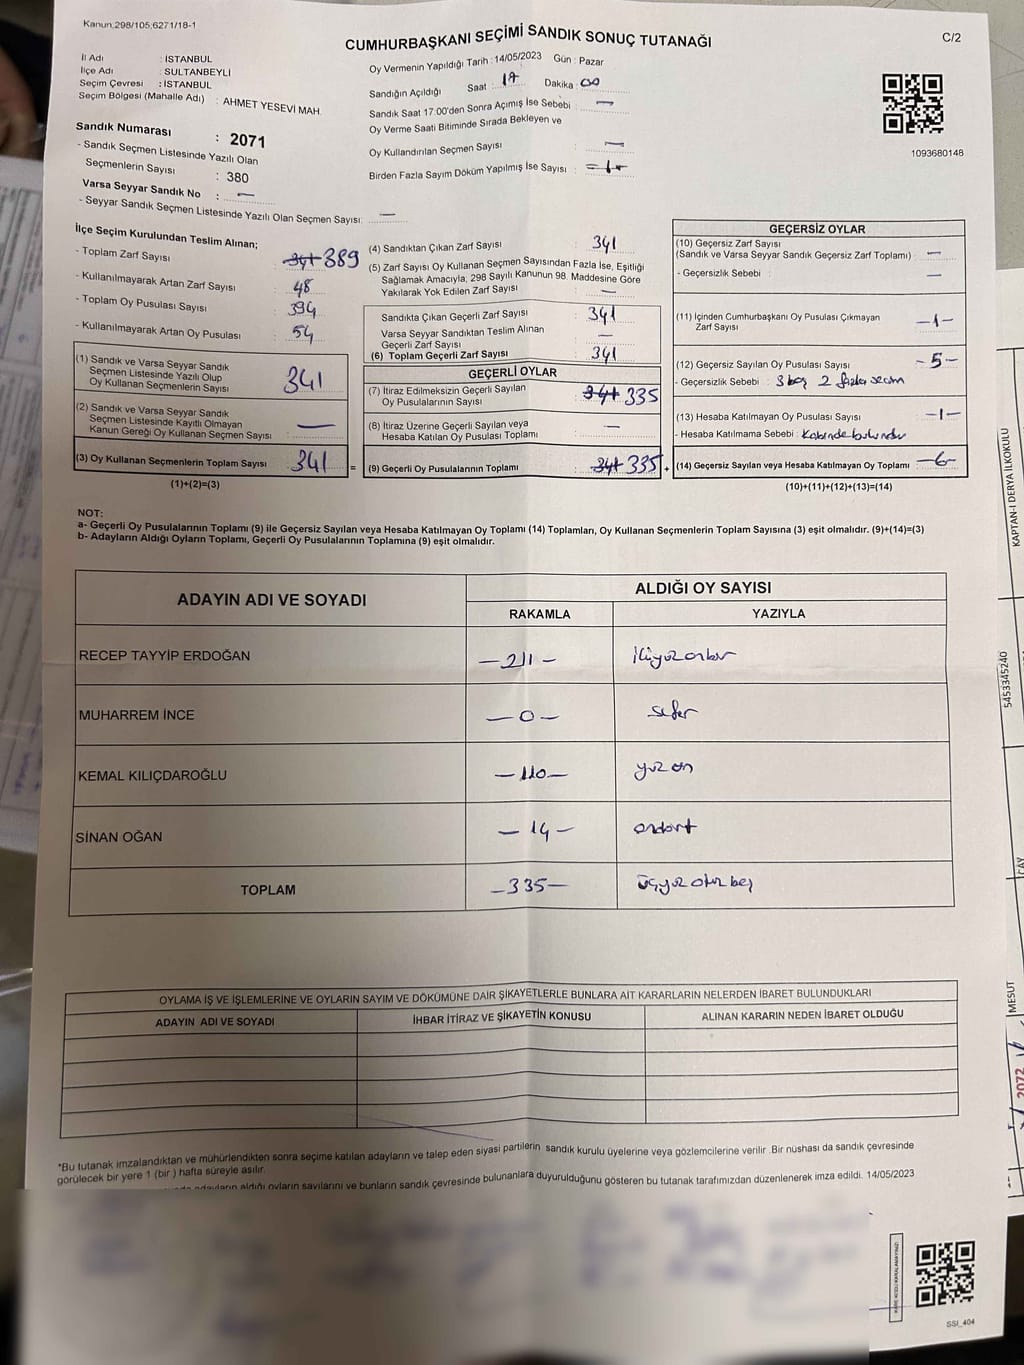 Kanun;298/105;6271/18-1
CUMHURBAŞKANI SEÇİMİ SANDIK SONUÇ TUTANAĞI
C/2
İl Adı : İSTANBUL
İlçe Adı : SULTANBEYLİ
Seçim Çevresi : İSTANBUL
Seçim Bölgesi (Mahalle Adı) : AHMET YESEVİ MAH.
Sandık Numarası : 2071
- Sandık Seçmen Listesinde Yazılı Olan
Seçmenlerin Sayısı : 380
Varsa Seyyar Sandık No : —
- Seyyar Sandık Seçmen Listesinde Yazılı Olan Seçmen Sayısı: —
Oy Vermenin Yapıldığı Tarih : 14/05/2023 Gün : Pazar
Sandığın Açıldığı Saat : 17 Dakika : 00
Sandık Saat 17:00'den Sonra Açımış İse Sebebi : —
Oy Verme Saati Bitiminde Sırada Bekleyen ve
Oy Kullandırılan Seçmen Sayısı : —
Birden Fazla Sayım Döküm Yapılmış İse Sayısı :
1093680148
İlçe Seçim Kurulundan Teslim Alınan;
- Toplam Zarf Sayısı : 341 389
- Kullanılmayarak Artan Zarf Sayısı : 48
- Toplam Oy Pusulası Sayısı : 394
- Kullanılmayarak Artan Oy Pusulası : 54
(1) Sandık ve Varsa Seyyar Sandık
Seçmen Listesinde Yazılı Olup
Oy Kullanan Seçmenlerin Sayısı : 341
(2) Sandık ve Varsa Seyyar Sandık
Seçmen Listesinde Kayıtlı Olmayan
Kanun Gereği Oy Kullanan Seçmen Sayısı : —
(3) Oy Kullanan Seçmenlerin Toplam Sayısı : 341 =
(1)+(2)=(3)
(4) Sandıktan Çıkan Zarf Sayısı : 341
(5) Zarf Sayısı Oy Kullanan Seçmen Sayısından Fazla İse, Eşitliği
Sağlamak Amacıyla; 298 Sayılı Kanunun 98. Maddesine Göre
Yakılarak Yok Edilen Zarf Sayısı : —
Sandıkta Çıkan Geçerli Zarf Sayısı : 341
Varsa Seyyar Sandıktan Teslim Alınan
Geçerli Zarf Sayısı : —
(6) Toplam Geçerli Zarf Sayısı : 341
GEÇERLİ OYLAR
(7) İtiraz Edilmeksizin Geçerli Sayılan
Oy Pusulalarının Sayısı : 341 335
(8) İtiraz Üzerine Geçerli Sayılan veya
Hesaba Katılan Oy Pusulası Toplamı : —
(9) Geçerli Oy Pusulalarının Toplamı : 341 335 +
GEÇERSİZ OYLAR
(10) Geçersiz Zarf Sayısı
(Sandık ve Varsa Seyyar Sandık Geçersiz Zarf Toplamı) : —
- Geçersizlik Sebebi : —
(11) İçinden Cumhurbaşkanı Oy Pusulası Çıkmayan
Zarf Sayısı : -1-
(12) Geçersiz Sayılan Oy Pusulası Sayısı : -5-
- Geçersizlik Sebebi : 3 boş 2 fazla seçim
(13) Hesaba Katılmayan Oy Pusulası Sayısı : -1-
- Hesaba Katılmama Sebebi : Kabinde bulundu
(14) Geçersiz Sayılan veya Hesaba Katılmayan Oy Toplamı : -6-
(10)+(11)+(12)+(13)=(14)
NOT:
a- Geçerli Oy Pusulalarının Toplamı (9) ile Geçersiz Sayılan veya Hesaba Katılmayan Oy Toplamı (14) Toplamları, Oy Kullanan Seçmenlerin Toplam Sayısına (3) eşit olmalıdır. (9)+(14)=(3)
b- Adayların Aldığı Oyların Toplamı, Geçerli Oy Pusulalarının Toplamına (9) eşit olmalıdır.
ADAYIN ADI VE SOYADI
ALDIĞI OY SAYISI
RAKAMLA YAZIYLA
RECEP TAYYİP ERDOĞAN -211- ikiyüzonbir
MUHARREM İNCE -0- sıfır
KEMAL KILIÇDAROĞLU -110- yüz on
SİNAN OĞAN -14- ondört
TOPLAM -335- üçyüz otuz beş
OYLAMA İŞ VE İŞLEMLERİNE VE OYLARIN SAYIM VE DÖKÜMÜNE DAİR ŞİKAYETLERLE BUNLARA AİT KARARLARIN NELERDEN İBARET BULUNDUKLARI
ADAYIN ADI VE SOYADI İHBAR İTİRAZ VE ŞİKAYETİN KONUSU ALINAN KARARIN NEDEN İBARET OLDUĞU
*Bu tutanak imzalandıktan ve mühürlendikten sonra seçime katılan adayların ve talep eden siyasi partilerin sandık kurulu üyelerine veya gözlemcilerine verilir .Bir nüshası da sandık çevresinde
görülecek bir yere 1 (bir ) hafta süreyle asılır.
adayların aldığı oyların sayılarını ve bunların sandık çevresinde bulunanlara duyurulduğunu gösteren bu tutanak tarafımızdan düzenlenerek imza edildi. 14/05/2023
SSI_404
KAPTAN-I DERYA İLKOKULU
5453345240
ÇAY
MESUT
2072